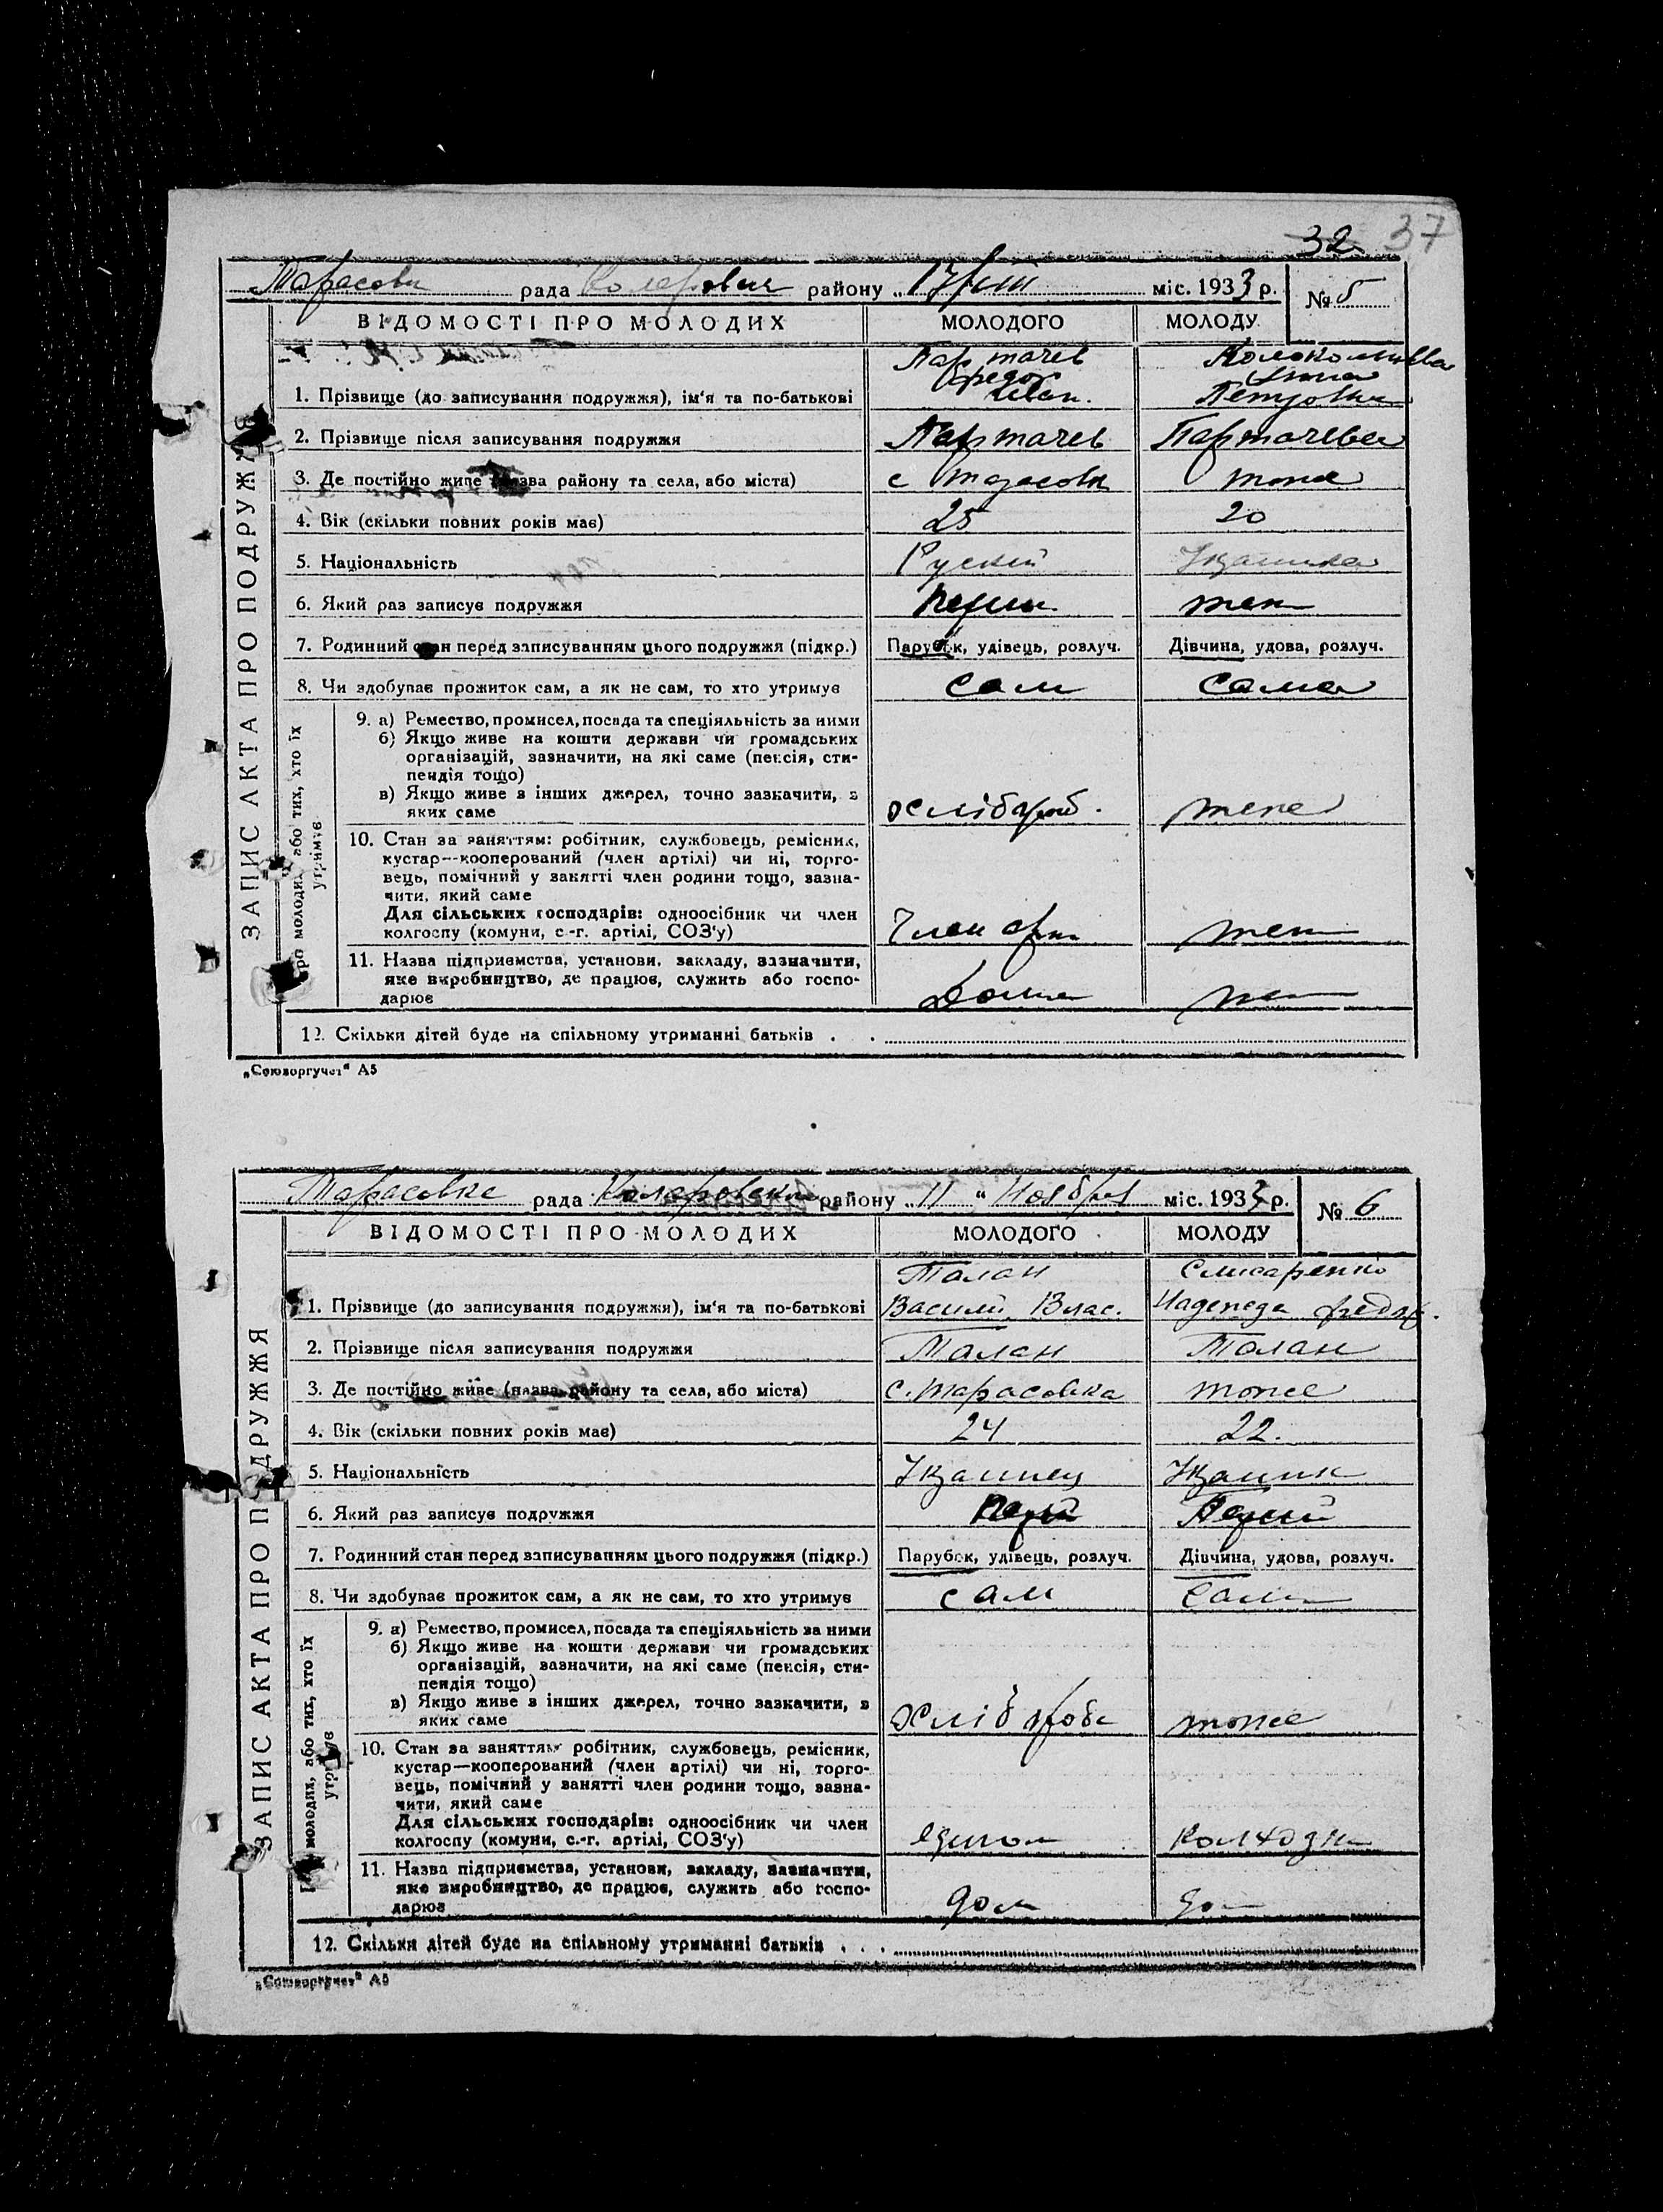 32 37
Тарасовк рада Коларовск району „17/VIII міс. 1933 р. № 5
ВІДОМОСТІ ПРО МОЛОДИХ МОЛОДОГО МОЛОДУ
Партачев
Федор
Иван.
Анна
Петровна
1. Прізвище (до записування подружжя), ім'я та по-батькові
2. Прізвище після записування подружжя Партачев Партачева
3. Де постійно живе (назва району та села, або міста) с Тарасовк тоже
4. Вік (скільки повних років має) 25 20
5. Національність Руский Украинка
6. Який раз записує подружжя
7. Родинний стан перед записуванням цього подружжя (підкр.) Парубок, удівець, розлуч. Дівчина, удова, розлуч.
8. Чи здобуває прожиток сам, а як не сам, то хто утримує сам сама
ЗАПИС АКТА ПРО ПОДРУЖЖЯ
Про молодих, або тих, хто їх утримує
9. а) Ремество, промисел, посада та спеціяльність за ними
б) Якщо живе на кошти держави чи громадських
організацій, зазначити, на які саме (пенсія, сти-
пендія тощо)
в) Якщо живе з інших джерел, точно зазначити, з
яких саме
10. Стан за заняттям: робітник, службовець, ремісник,
кустар—кооперований (член артілі) чи ні, торго-
вець, помічний у занятті член родини тощо, зазна-
чити, який саме
Для сільських господарів: одноосібник чи член
колгоспу (комуни, с.-г. артілі, СОЗ'у) Член арт
11. Назва підприємства, установи, закладу, зазначити,
яке виробництво, де працює, служить або госпо-
дарює
12. Скільки дітей буде на спільному утриманні батьків . .
„Союзоргучет" А5
Тарасовка рада Коларовский району „11 " Ноября міс. 1933 р. № 6
ВІДОМОСТІ ПРО МОЛОДИХ МОЛОДОГО МОЛОДУ
Талан Слисаренко
1. Прізвище (до записування подружжя), ім'я та по-батькові Василий Влас. Надежда Федор.
2. Прізвище після записування подружжя Талан Талан
3. Де постійно живе (назва району та села, або міста) с. Тарасовка тоже
4. Вік (скільки повних років має) 24 22.
5. Національність
6. Який раз записує подружжя
7. Родинний стан перед записуванням цього подружжя (підкр.) Парубок, удівець, розлуч. Дівчина, удова, розлуч.
8. Чи здобуває прожиток сам, а як не сам, то хто утримує сам сам
ЗАПИС АКТА ПРО ПОДРУЖЖЯ
Про молодих, або тих, хто їх утримує
9. а) Ремество, промисел, посада та спеціяльність за ними
б) Якщо живе на кошти держави чи громадських
організацій, зазначити, на які саме (пенсія, сти-
пендія тощо)
в) Якщо живе з інших джерел, точно зазначити, з
яких саме тоже
10. Стан за заняттям робітник, службовець, ремісник,
кустар—кооперований (член артілі) чи ні, торго-
вець, помічний у занятті член родини тощо, зазна-
чити, який саме
Для сільських господарів: одноосібник чи член
колгоспу (комуни, с.-г. артілі, СОЗ'у)
11. Назва підприємства, установи, закладу, зазначити,
яке виробництво, де працює, служить або госпо-
дарює дом дом
12. Скільки дітей буде на спільному утриманні батьків . . .
„Союзоргучет" А5